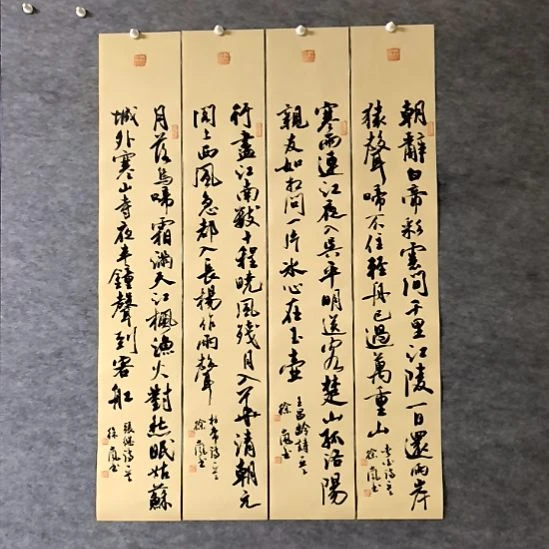 朝辭白帝彩雲間千里江陵一日還兩岸
猿聲啼不住輕舟已過萬重山
李白詩一首
徐嵐書
寒雨連江夜入吳平明送客楚山孤洛陽
親友如相問一片冰心在玉壺
王昌齡詩一首
徐嵐書
行盡江南數十程曉風残月入華清朝元
閣上西風急都入長楊作雨聲
杜常詩一首
徐嵐書
月落烏啼霜滿天江楓漁火對愁眠姑蘇
城外寒山寺夜半鐘聲到客船
張継詩一首
徐嵐書